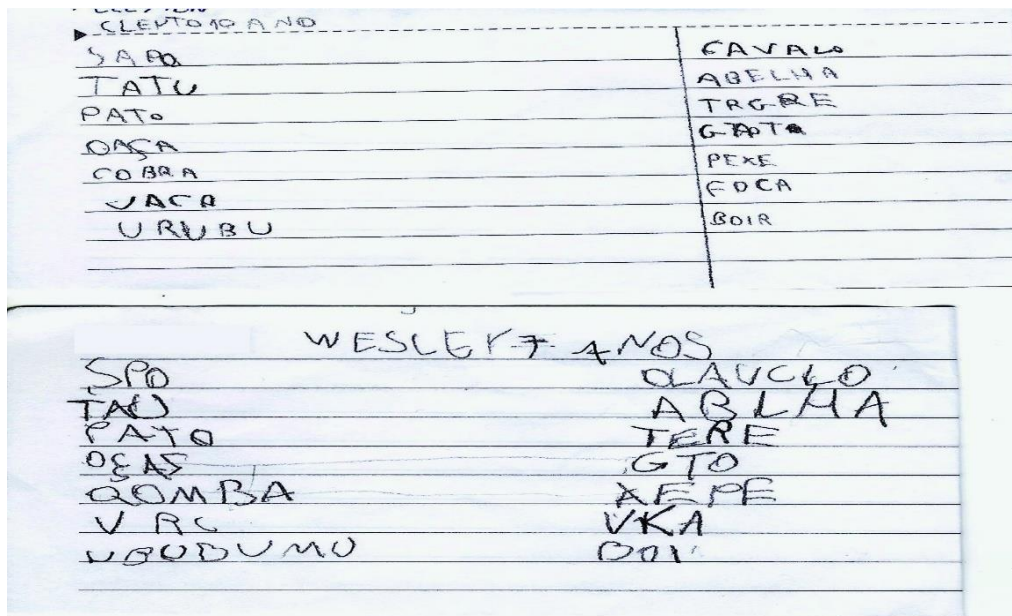 CLEYTO 10 ANO
SAPO
TATU
PATO
OAÇA
COBRA
VACA
URUBU
CAVALO
ABELHA
TRGRE
PEXE
FOCA
BOIR
WESLEY 7 ANOS
SPO
TAU
PATO
OEAS
QOMBA
VRC
UBUDUMU
OLAVCLO
ABLHA
TERE
GTO
XEPE
VKA
OOI